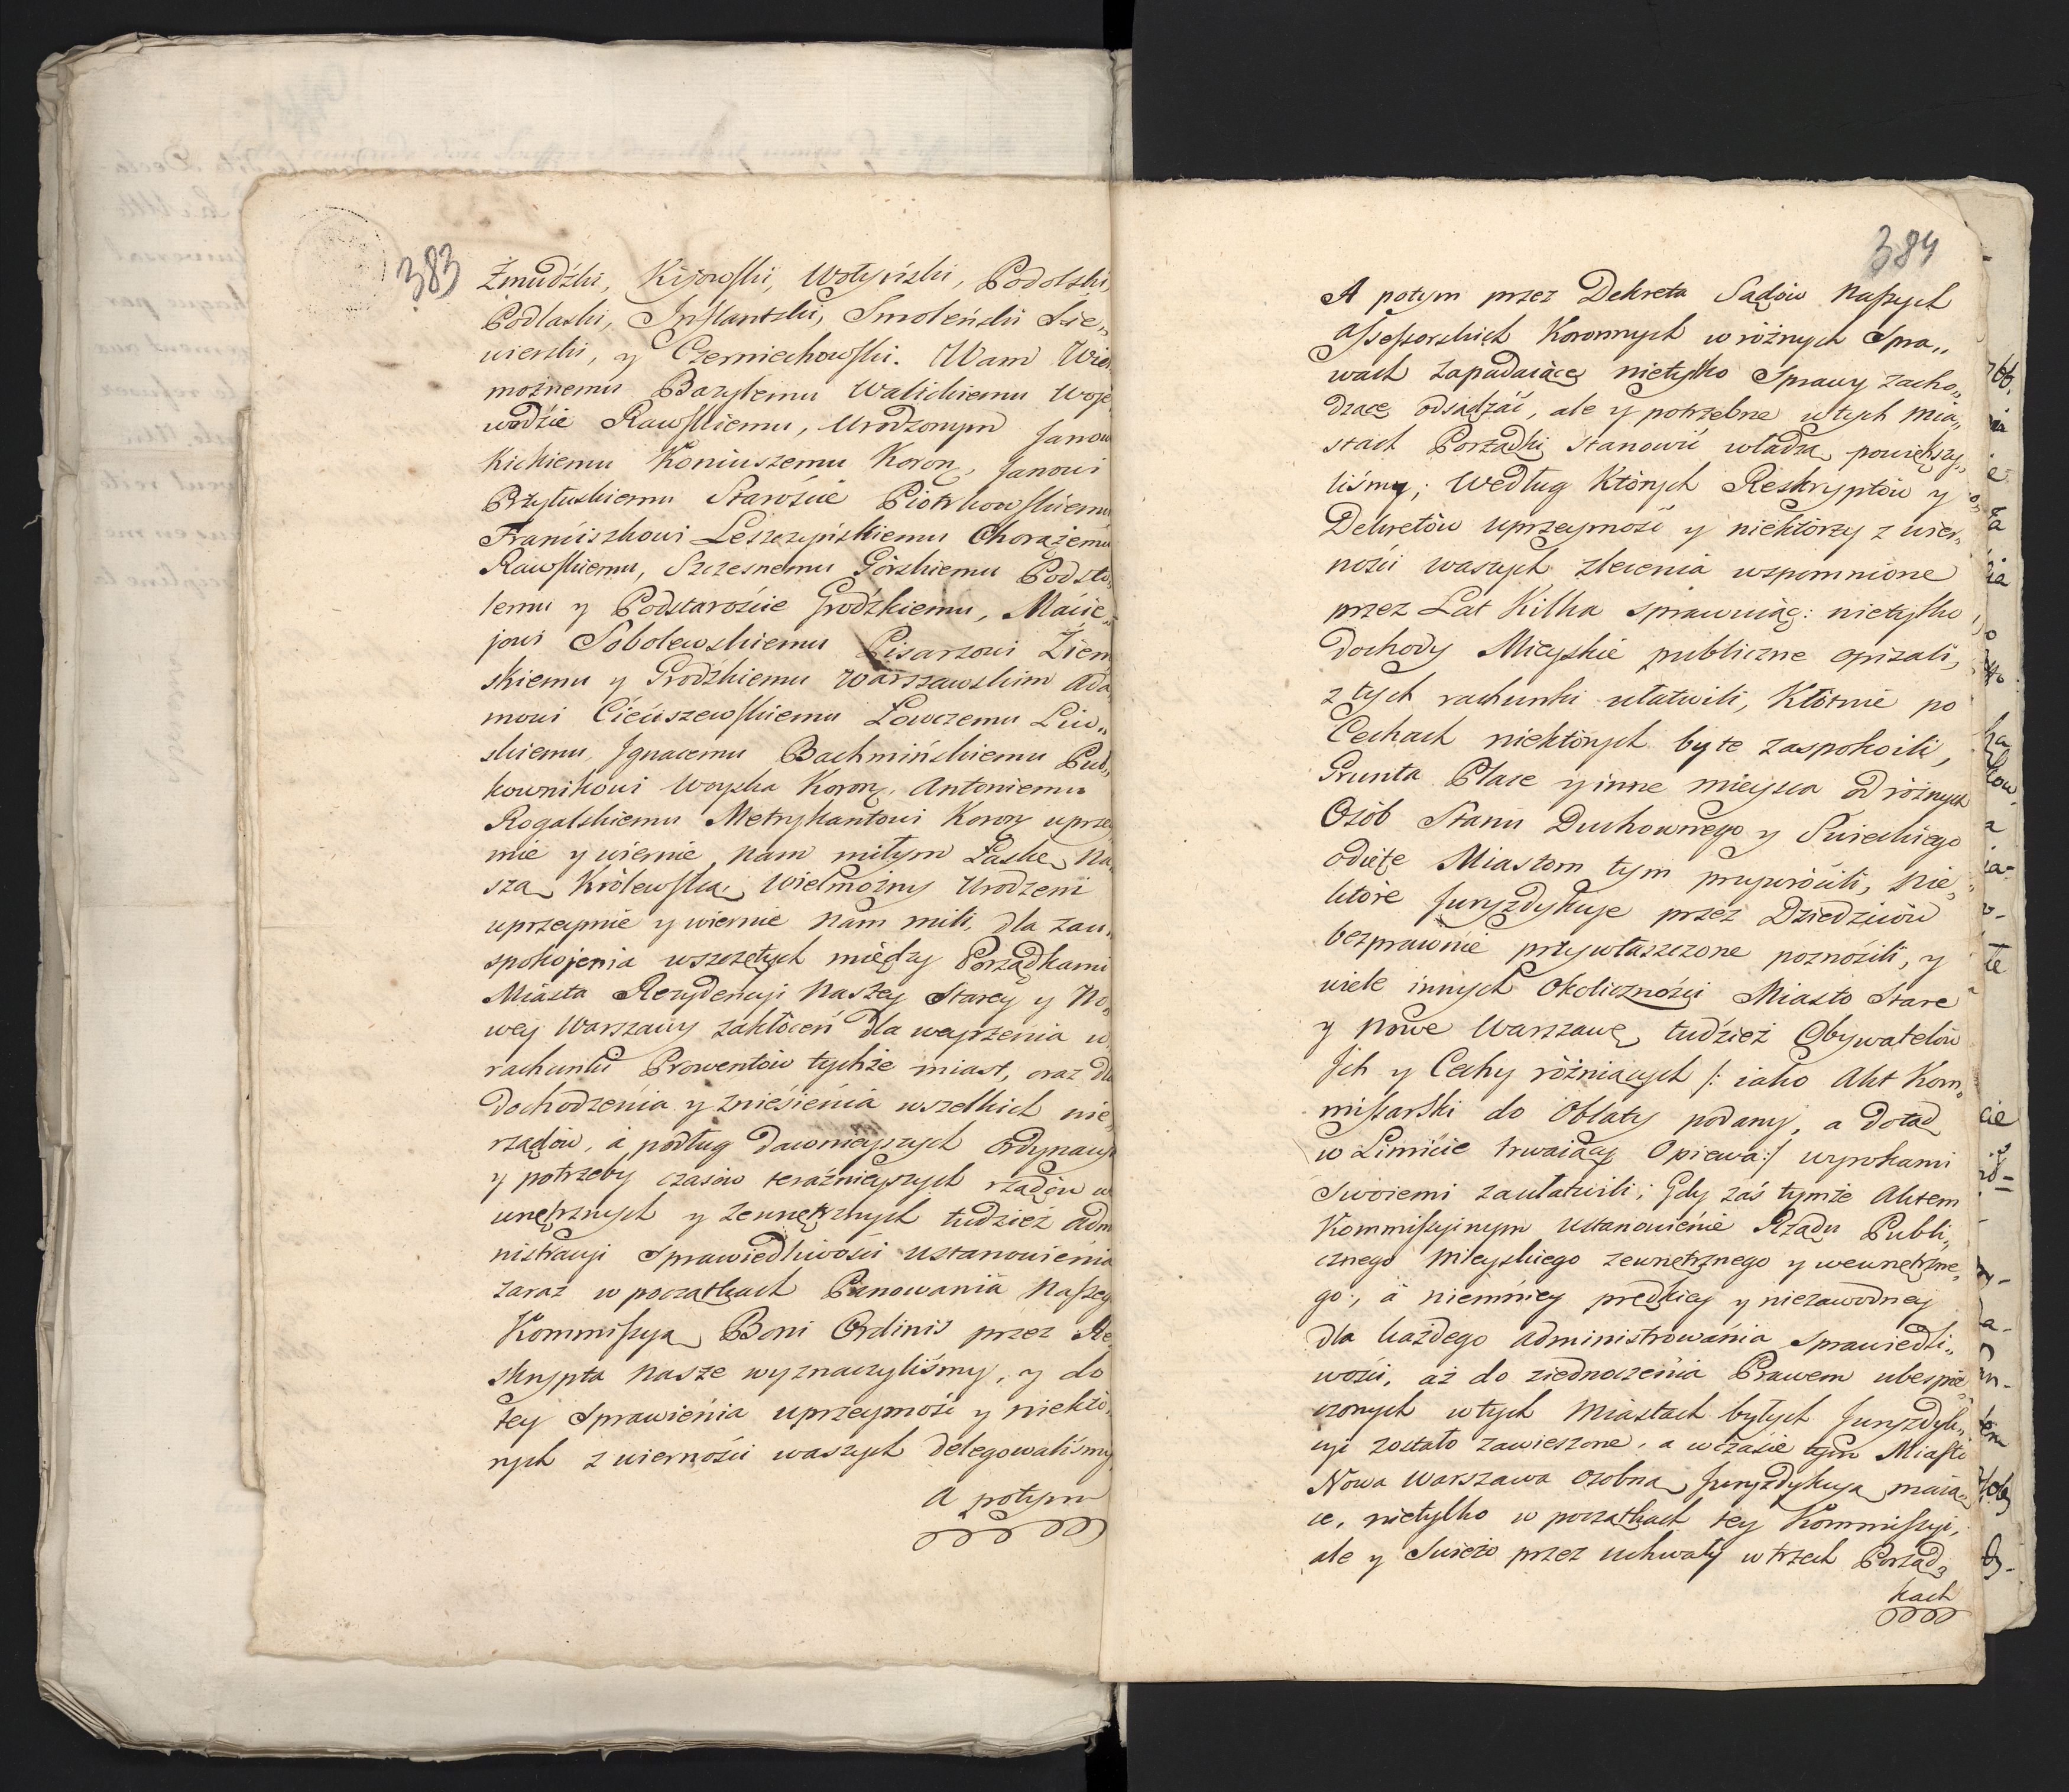 383
Żmudźki, Kijowski, Wołyński, Podolski,
Podlaski, Inflantski, Smoleński Sie„
wierski, y Czerniechowski. Wam Wiel
możnemu Bazylemu Walickiemu Woje
wodzie Rawskiemu, Urodzonym Janow
Kickiemu Koniuszemu Koron, Janowi
Przyłuskiemu Starośćie Piotrkowskiemu
Franćiszkowi Leszczyńskiemu Chorążemu
Rawskiemu, Szczesnemu Górskiemu Podsto
lemu y Podstarośćie Grodźkiemu, Maćie„
jowi Sobolewskiemu Pisarzowi Ziem
skiemu y Grodźkiemu Warszawskim Ada
mowi Ciećiszewskiemu Łowczemu Liw„
skiemu, Ignacemu Bachmińskiemu Puł„
kownikowi Woyska Koron, Antoniemu
Rogalskiemu Metrykantowi Koron uprzey
mie y wiernie, nam miłym Łaskę Na
szą Królewską, Wielmożny Urodzeni
uprzeymie y wiernie Nam mili, dla zau„
spokojenia wszczętych między Porządkami
Miasta Rezydencyi Naszey Starey y No
wey Warszawy zakłóceń dla weyrzenia w
rachunki Prowentów tychże miast, oraz dla
dochodzenia y zniesienia wszelkich nie„
rządów, á podług dawnieyszych Ordynacyi
y potrzeby czasów teraźnieyszych rządów w
unętrznych y zewnętrznych tudzież adm
nistracyi Sprawiedliwości ustanowienia
zaraz w początkach Panowania Naszego
Kommissyą Boni Ordinis przez Re
skrypta Nasze wyznaczyliśmy, y do
tey sprawienia uprzeymość y niektó„
rych z wierności waszych delegowaliśmy
A potym
384
A potym przez Dekreta Sądów Naszych
Assessorskich Koronnych w różnych Spra„
wach zapadaiące nietylko Sprawy zacho„
dzące odsądzać, ale y potrzebne w tych Mia„
stach Porządki stanowić władzą powiększy„
liśmy; Według których Reskryptów y
Dekretów uprzeymość y niektórzy z wier„
ności waszych zlecenia wspomnione
przez Lat Kilka sprawuiąc: nietylko
dochody Mieyskie publiczne opisali,
z tych rachunki ułatwili, Kłótnie po
Cechach niektórych byłe zaspokoili,
Grunta Place y inne mieysca od różnych
Osób Stanu Duchownego y Swieckiego
odięte Miastom tym przywrócili, nie„
które Juryzdykcye przez Dziedziców
bezprawnie przywłaszczone poznosili, y
wiele innych Okoliczności Miasto Stare
y Nowe Warszawę, tudzież Obywatelów
Ich y Cechy różniących /: iako Akt Kom„
missarski do Oblaty podany, a dotąd
w Limicie trwaiący Opiewa :/ wyrokami
Swoiemi załatwili; Gdy zaś tymże Aktem
Kommissyinym ustanowienie Rządu Publi„
cznego Mieyskiego zewnętrznego y wewnętrzne„
go, á niemniey prędkiey y niezawodney
dla każdego administrowania sprawiedli„
wości, aż do ziednoczenia Prawem ubespie„
czonych w tych Miastach byłych Juryzdyk„
cyi zostało zawieszone, a w czasie tym Miasto
Nowa Warszawa osobną Juryzdykcyą maią„
ce, nietylko w początkach tey Kommissyi,
ale y świeżo przez uchwały w trzech Porząd„
kach